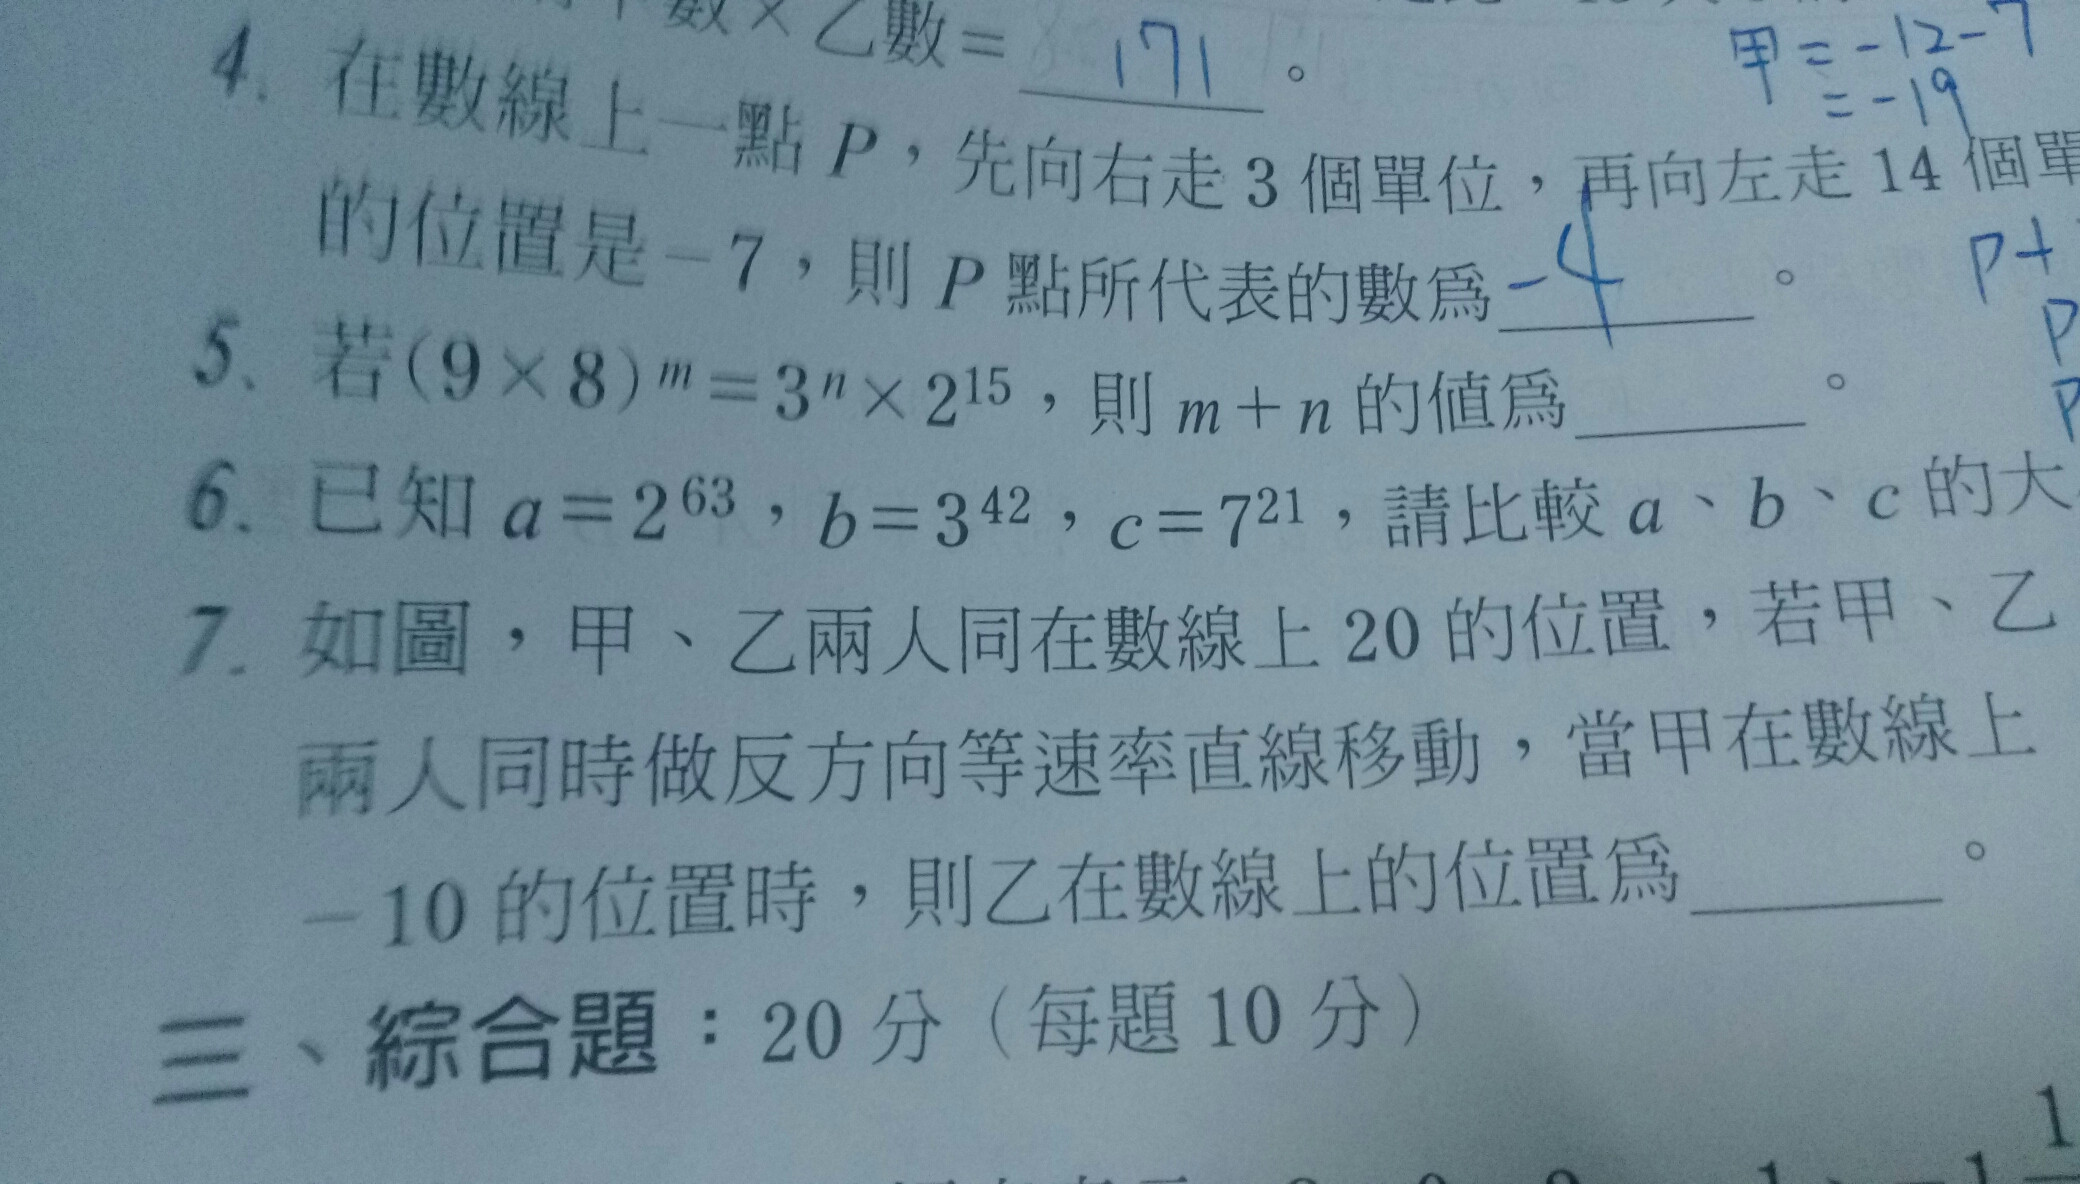 數×乙數= 171 。
甲=-12-7
=-19
4. 在數線上一點 P，先向右走 3 個單位，再向左走 14 個單
的位置是-7，則 P 點所代表的數爲 -4 。
P+
P
P
5. 若(9×8)^m=3^n×2^15，則 m+n 的值爲______。
6. 已知 a=2^63，b=3^42，c=7^21，請比較 a、b、c 的大
7. 如圖，甲、乙兩人同在數線上 20 的位置，若甲、乙
兩人同時做反方向等速率直線移動，當甲在數線上
-10 的位置時，則乙在數線上的位置爲______。
三、綜合題：20 分（每題 10 分）